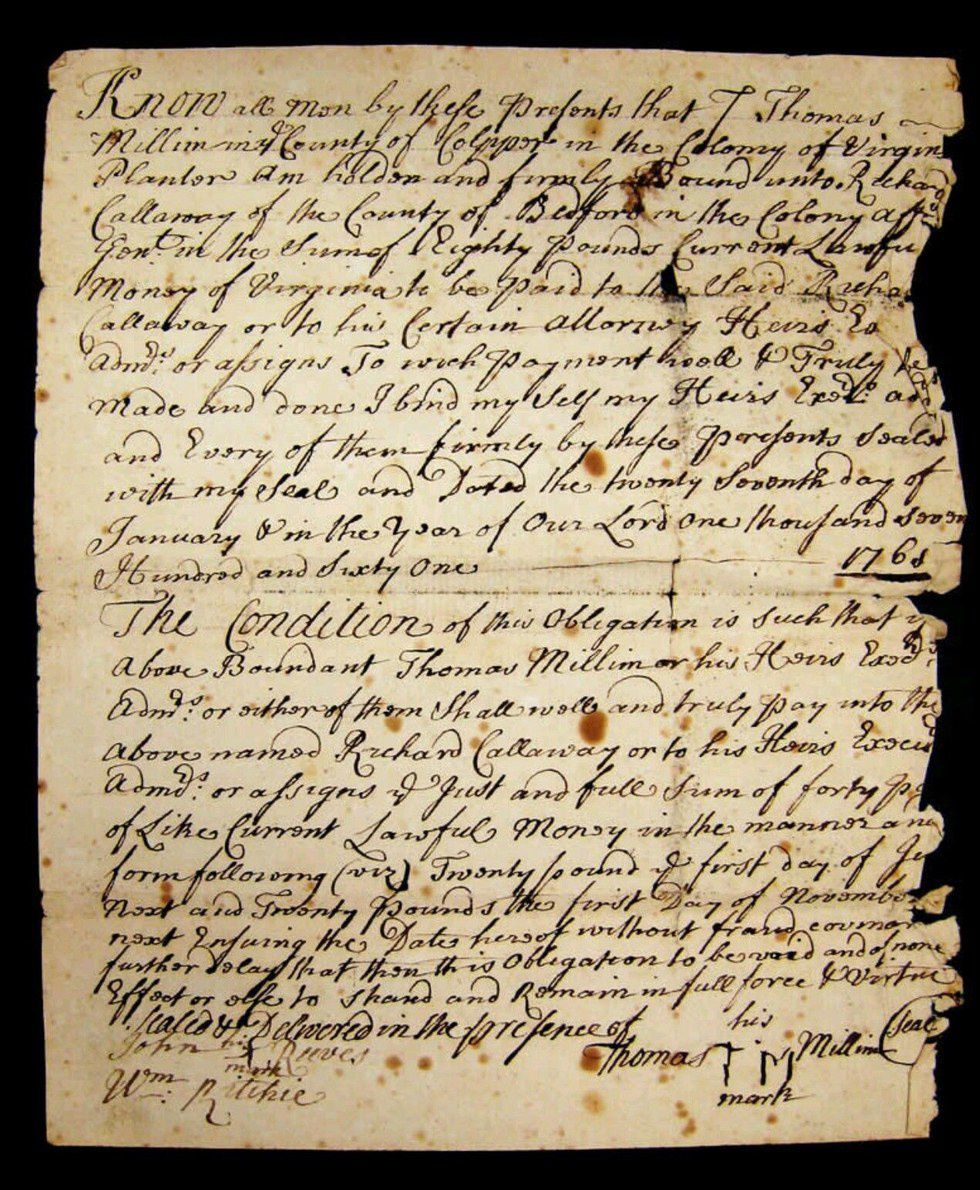 Know all Men by these Presents that I Thomas
Millim in ye County of Colpper in the Colony of Virgin
Planter Am holden and firmly Bound unto Richard
Callaway of the County of Bedford in the Colony affs
Gent. in the Sum of Eighty Pounds Current Lawfu
Money of Virginia to be Paid to the Said Richa
Callaway or to his Certain Attorney Heirs Ex
Admds. or assigns To wich Payment well & Truly be
Made and done I bind my Self my Heirs Exeds. add
and Every of them firmly by these Presents Sealed
with my Seal and Dated the twenty Seventh day of
January & in the Year of Our Lord One thousand Seven
Hundred and Sixty One 1761
The Condition of this Obligation is Such that if
Above Boundant Thomas Millim or his Heirs Exeds.
Admds. or either of them Shall well and truly Pay unto the
Above named Richard Callaway or to his Heirs Execu
Admds. or assigns ye Just and full Sum of forty Po
of Like Current Lawful Money in the manner and
form following (viz) Twenty pound ye first day of Ju
Next and Twenty Pounds the first Day of November
next Ensuing the Date hereof without fraud or
further delay that then this Obligation to be void and of none
Effect or else to Stand and Remain in full force & Virtue
Sealed & Delivered in the presence of
John his mark Reeves
Wm. Ritchie
Thomas his mark Millim Seal